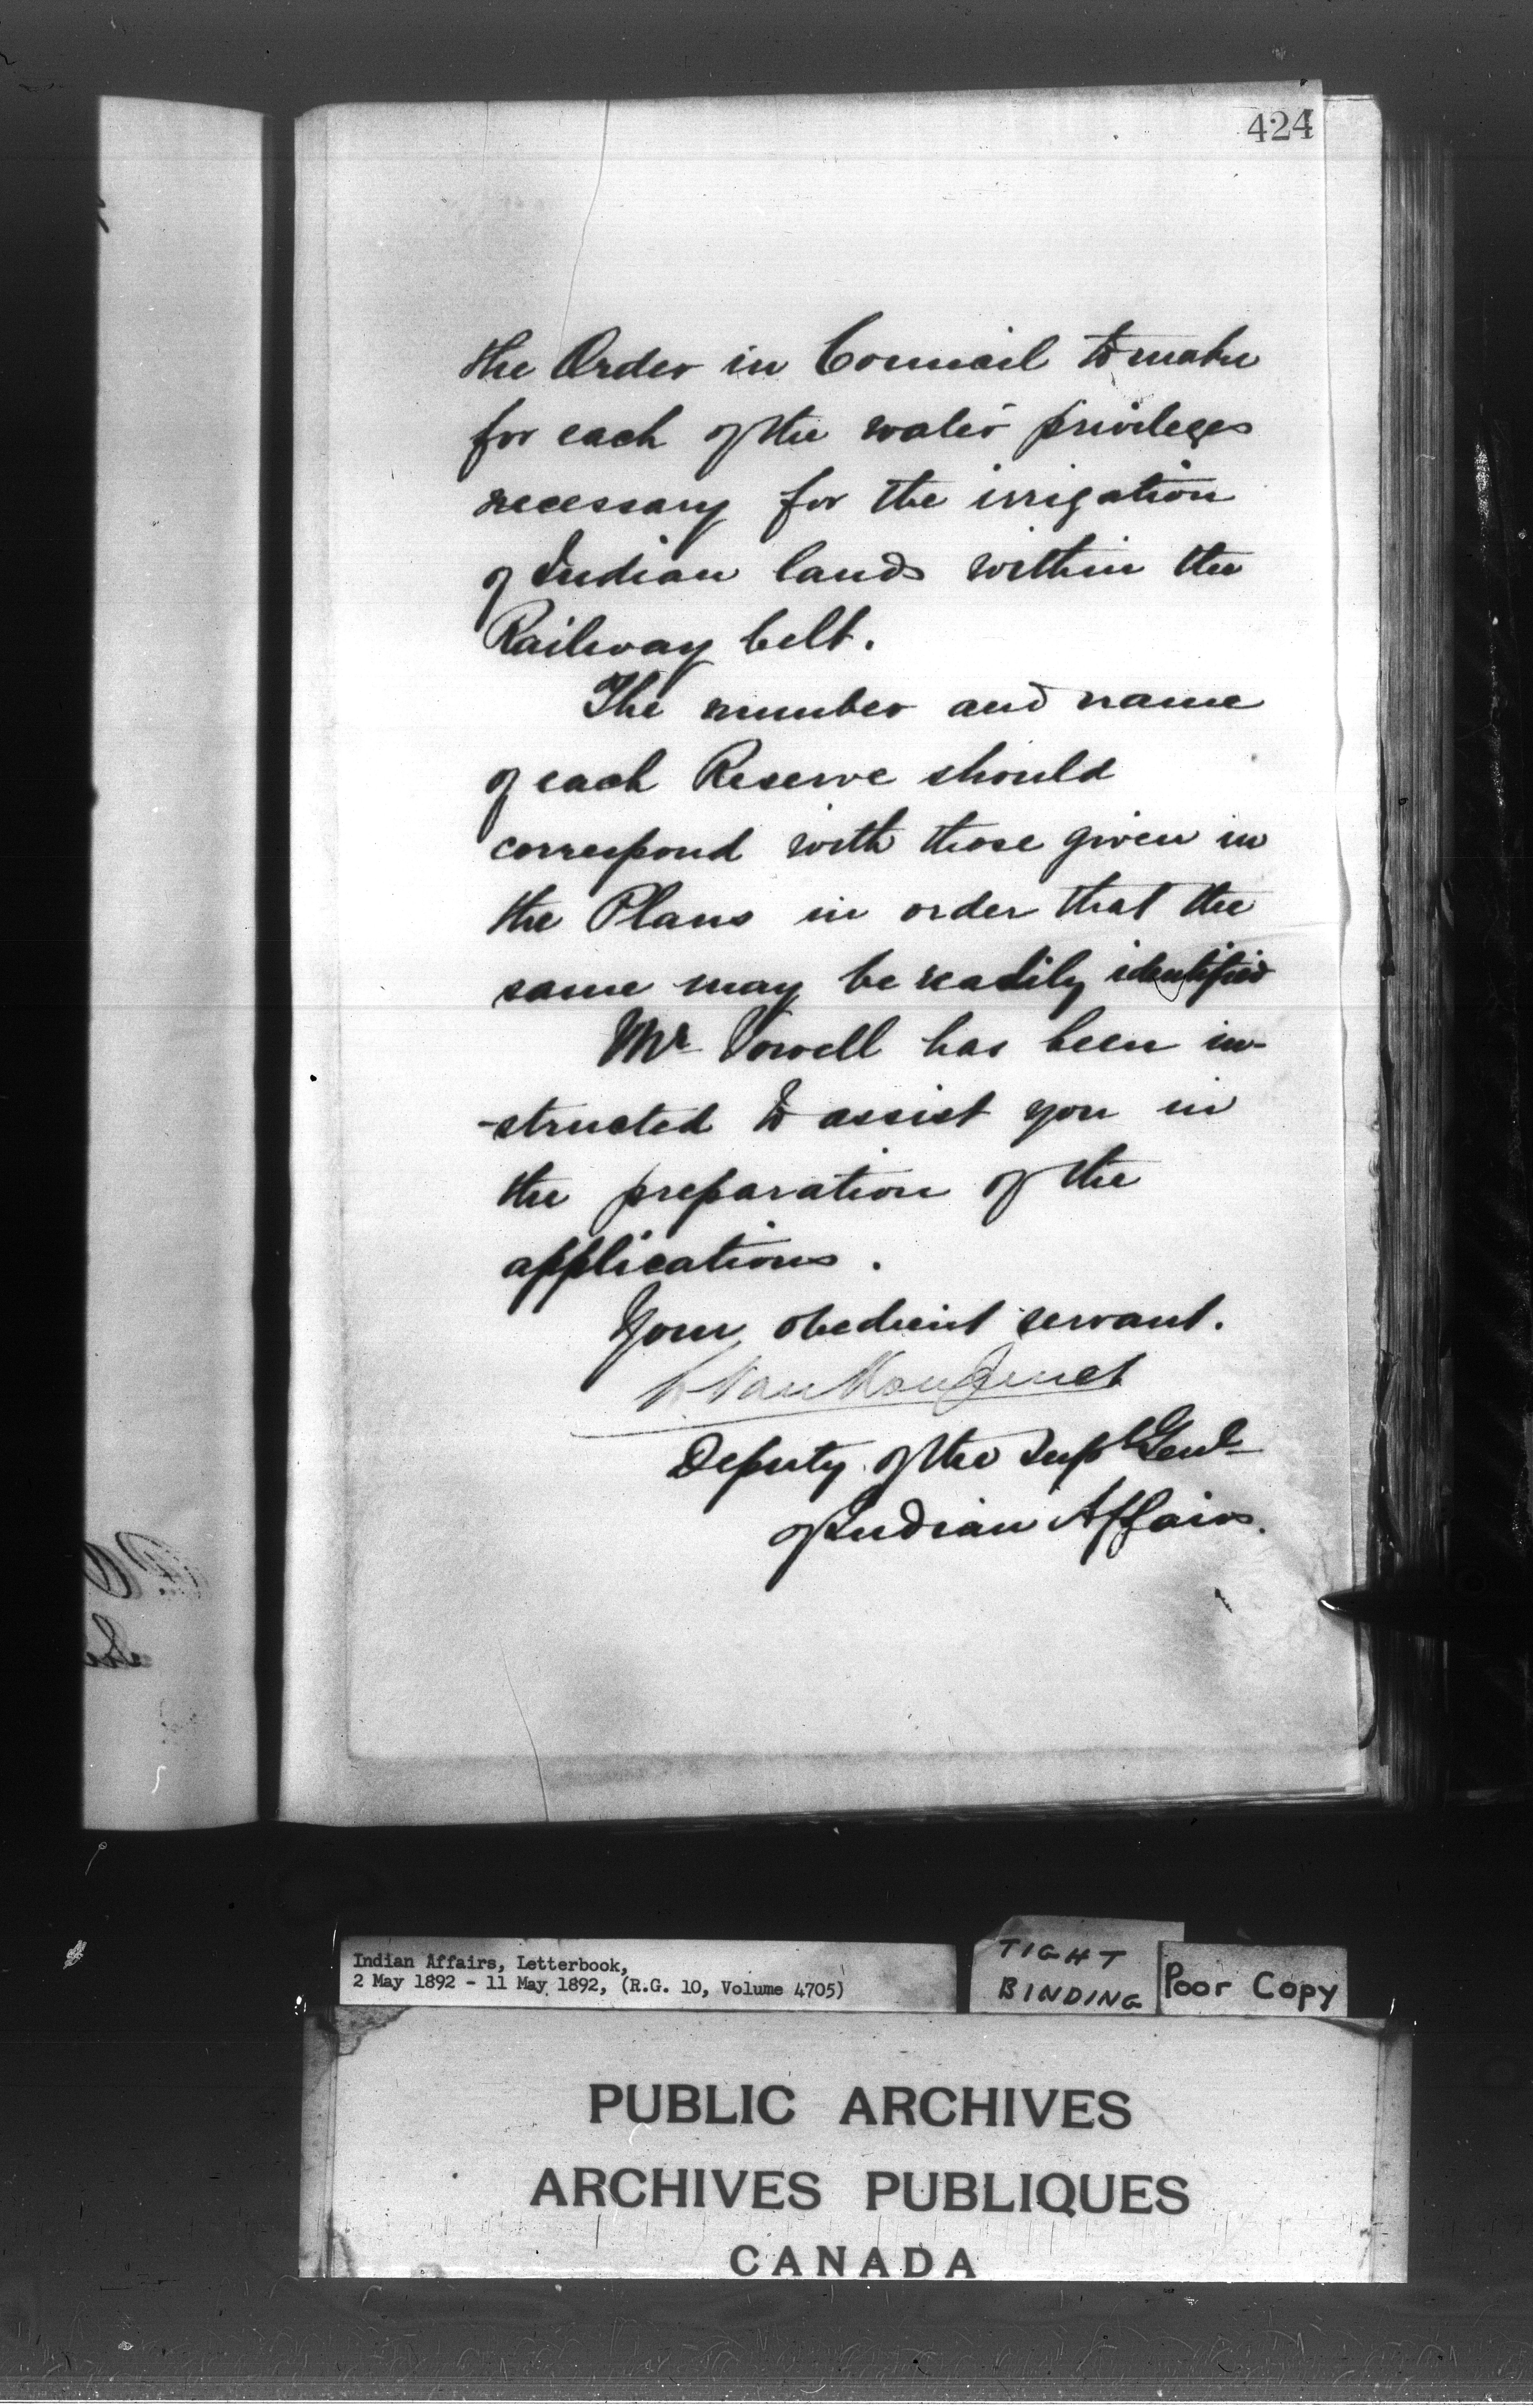 424
the Order in Council to make
for each of the water privileges
necessary for the irrigation
of Indian lands within the
Railway belt.
The number and name
of each Reserve should
correspond with those given in
the Plans in order that the
same may be readily identified
Mr Vowell has been in-
-structed to assist you in
the preparation of the
applications.
Your obedient servant.
L. VanKoughnet
Deputy of the Supt Genl
of Indian Affairs.
Indian Affairs, Letterbook,
2 May 1892 - 11 May 1892, (R.G. 10, Volume 4705)
TIGHT
BINDING
Poor Copy
PUBLIC ARCHIVES
ARCHIVES PUBLIQUES
CANADA